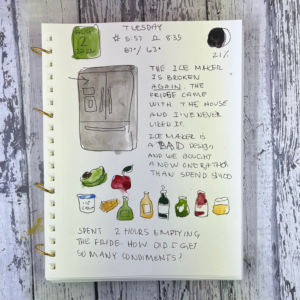 TUESDAY
2
5:57 8:35
87° / 63°
21%
THE ICE MAKER
IS BROKEN
AGAIN. THE
FRIDGE CAME
WITH THE HOUSE
AND I'VE NEVER
LIKED IT.
ICE MAKER IS
A BAD DESIGN
AND WE BOUGHT
A NEW ONE RATHER
THAN SPEND $400
SPENT 2 HOURS EMPTYING
THE FRIDGE. HOW DID I GET
SO MANY CONDIMENTS?